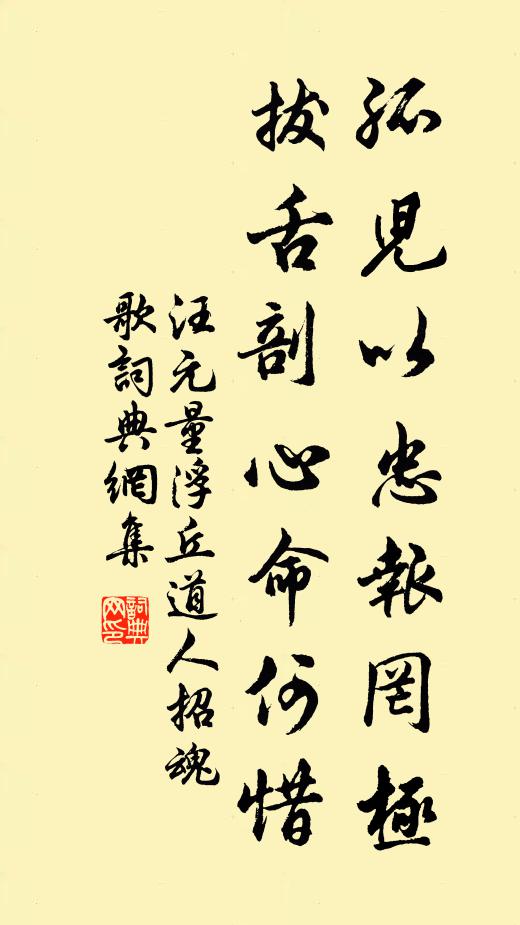 孤兒以忠報罔極
拔舌剖心命何惜
汪元量浮丘道人招魂
歌詞典網集
詞典網印